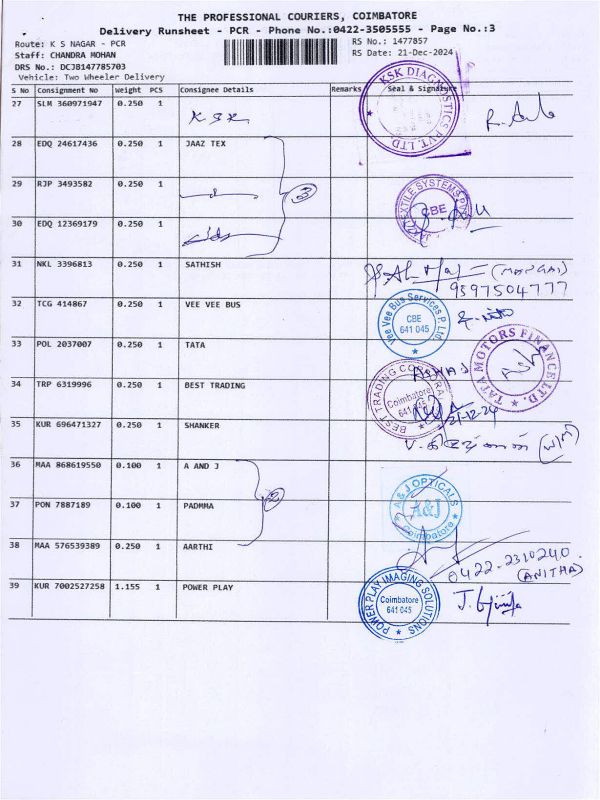 THE PROFESSIONAL COURIERS, COIMBATORE
Delivery Runsheet - PCR - Phone No.:0422-3505555 - Page No.:3
Route: K S NAGAR - PCR
RS No.: 1477857
Staff: CHANDRA MOHAN
RS Date: 21-Dec-2024
DRS No.: DCJB147785703
Vehicle: Two Wheeler Delivery
S No Consignment No Weight PCS Consignee Details Remarks Seal & Signature
27 SLM 360971947 0.250 1 KSK
KSK DIAGNOSTICS PVT. LTD
28 EDQ 24617436 0.250 1 JAAZ TEX
29 RJP 3493582 0.250 1
3
TEXTILE SYSTEMS
CBE
30 EDQ 12369179 0.250 1
31 NKL 3396813 0.250 1 SATHISH
(MONGAI)
9597504777
32 TCG 414867 0.250 1 VEE VEE BUS
Vee Vee Bus Services P. Ltd.
CBE
641 045
33 POL 2037007 0.250 1 TATA
TATA MOTORS FINANCE LTD.
34 TRP 6319996 0.250 1 BEST TRADING
BEST TRADING CORPORA
Coimbatore
641 045
21-12-24
35 KUR 696471327 0.250 1 SHANKER
36 MAA 868619550 0.100 1 A AND J
A & J OPTICALS
A&J
Coimbatore
37 PON 7887189 0.100 1 PADMMA
38 MAA 576539389 0.250 1 AARTHI
0422-2310240
(ANITHA)
39 KUR 7002527258 1.155 1 POWER PLAY
POWER PLAY IMAGING SOLUTIONS
Coimbatore
641 045